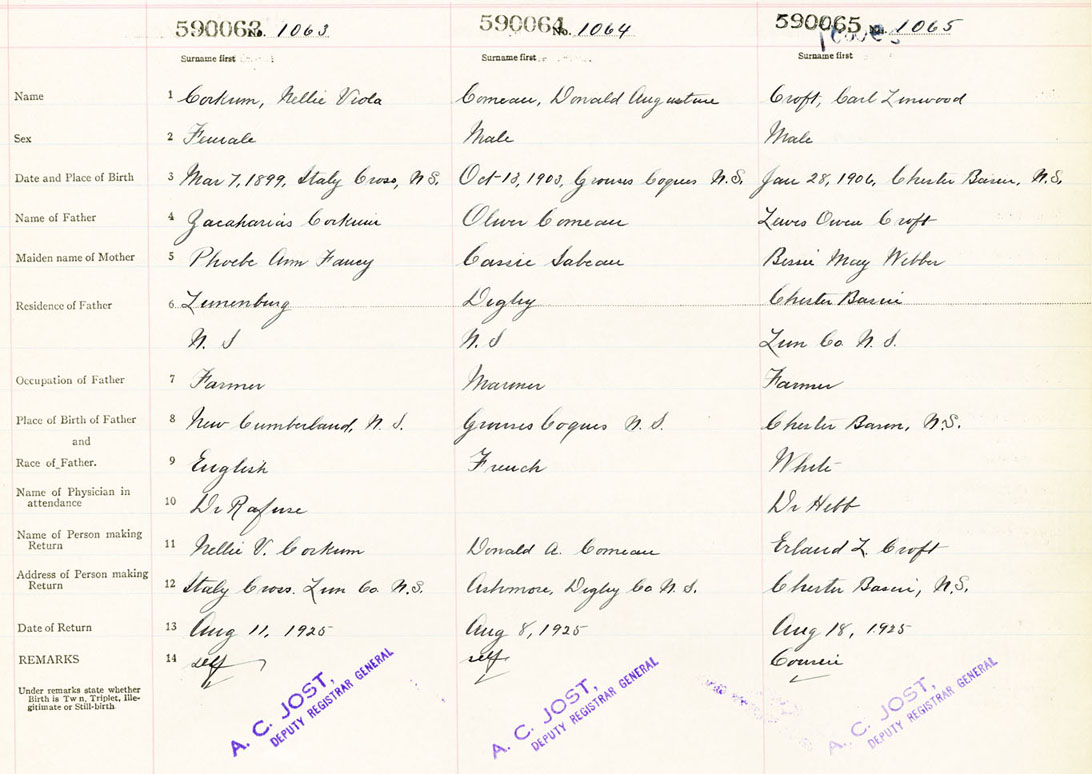 590063 No. 1063 590064 No. 1064 590065 No. 1065
Surname first Surname first Surname first
Name 1 Corkum, Nellie Viola Comeau, Donald Augustine Croft, Carl Linwood
Sex 2 Female Male Male
Date and Place of Birth 3 Mar 7, 1899, Italy Cross, N.S. Oct 13, 1903, Grosses Coques N.S. Jan 28, 1906, Chester Basin, N.S.
Name of Father 4 Zacaharias Corkum Oliver Comeau Owen Croft
Maiden name of Mother 5 Phoebe Ann Fancy Cassie Sabeau Bessie May Webber
Residence of Father 6 Lunenburg Digby Chester Basin
N. S N. S Lun Co. N. S.
Occupation of Father 7 Farmer Mariner Farmer
Place of Birth of Father 8 New Cumberland, N. S. Grosses Coques N. S. Chester Basin, N.S.
and
Race of Father. 9 English French White
Name of Physician in
attendance 10 Dr Rafuse Dr Hebb
Name of Person making
Return 11 Nellie V. Corkum Donald A. Comeau Erland L. Croft
Address of Person making
Return 12 Italy Cross. Lun Co. N.S. Ashmore, Digby Co N.S. Chester Basin, N.S.
Date of Return 13 Aug 11, 1925 Aug 8, 1925 Aug 18, 1925
REMARKS 14 self self Cousin
Under remarks state whether
Birth is Twin, Triplet, Ille-
gitimate or Still-birth.
A. C. JOST, A. C. JOST, A. C. JOST,
DEPUTY REGISTRAR GENERAL DEPUTY REGISTRAR GENERAL DEPUTY REGISTRAR GENERAL